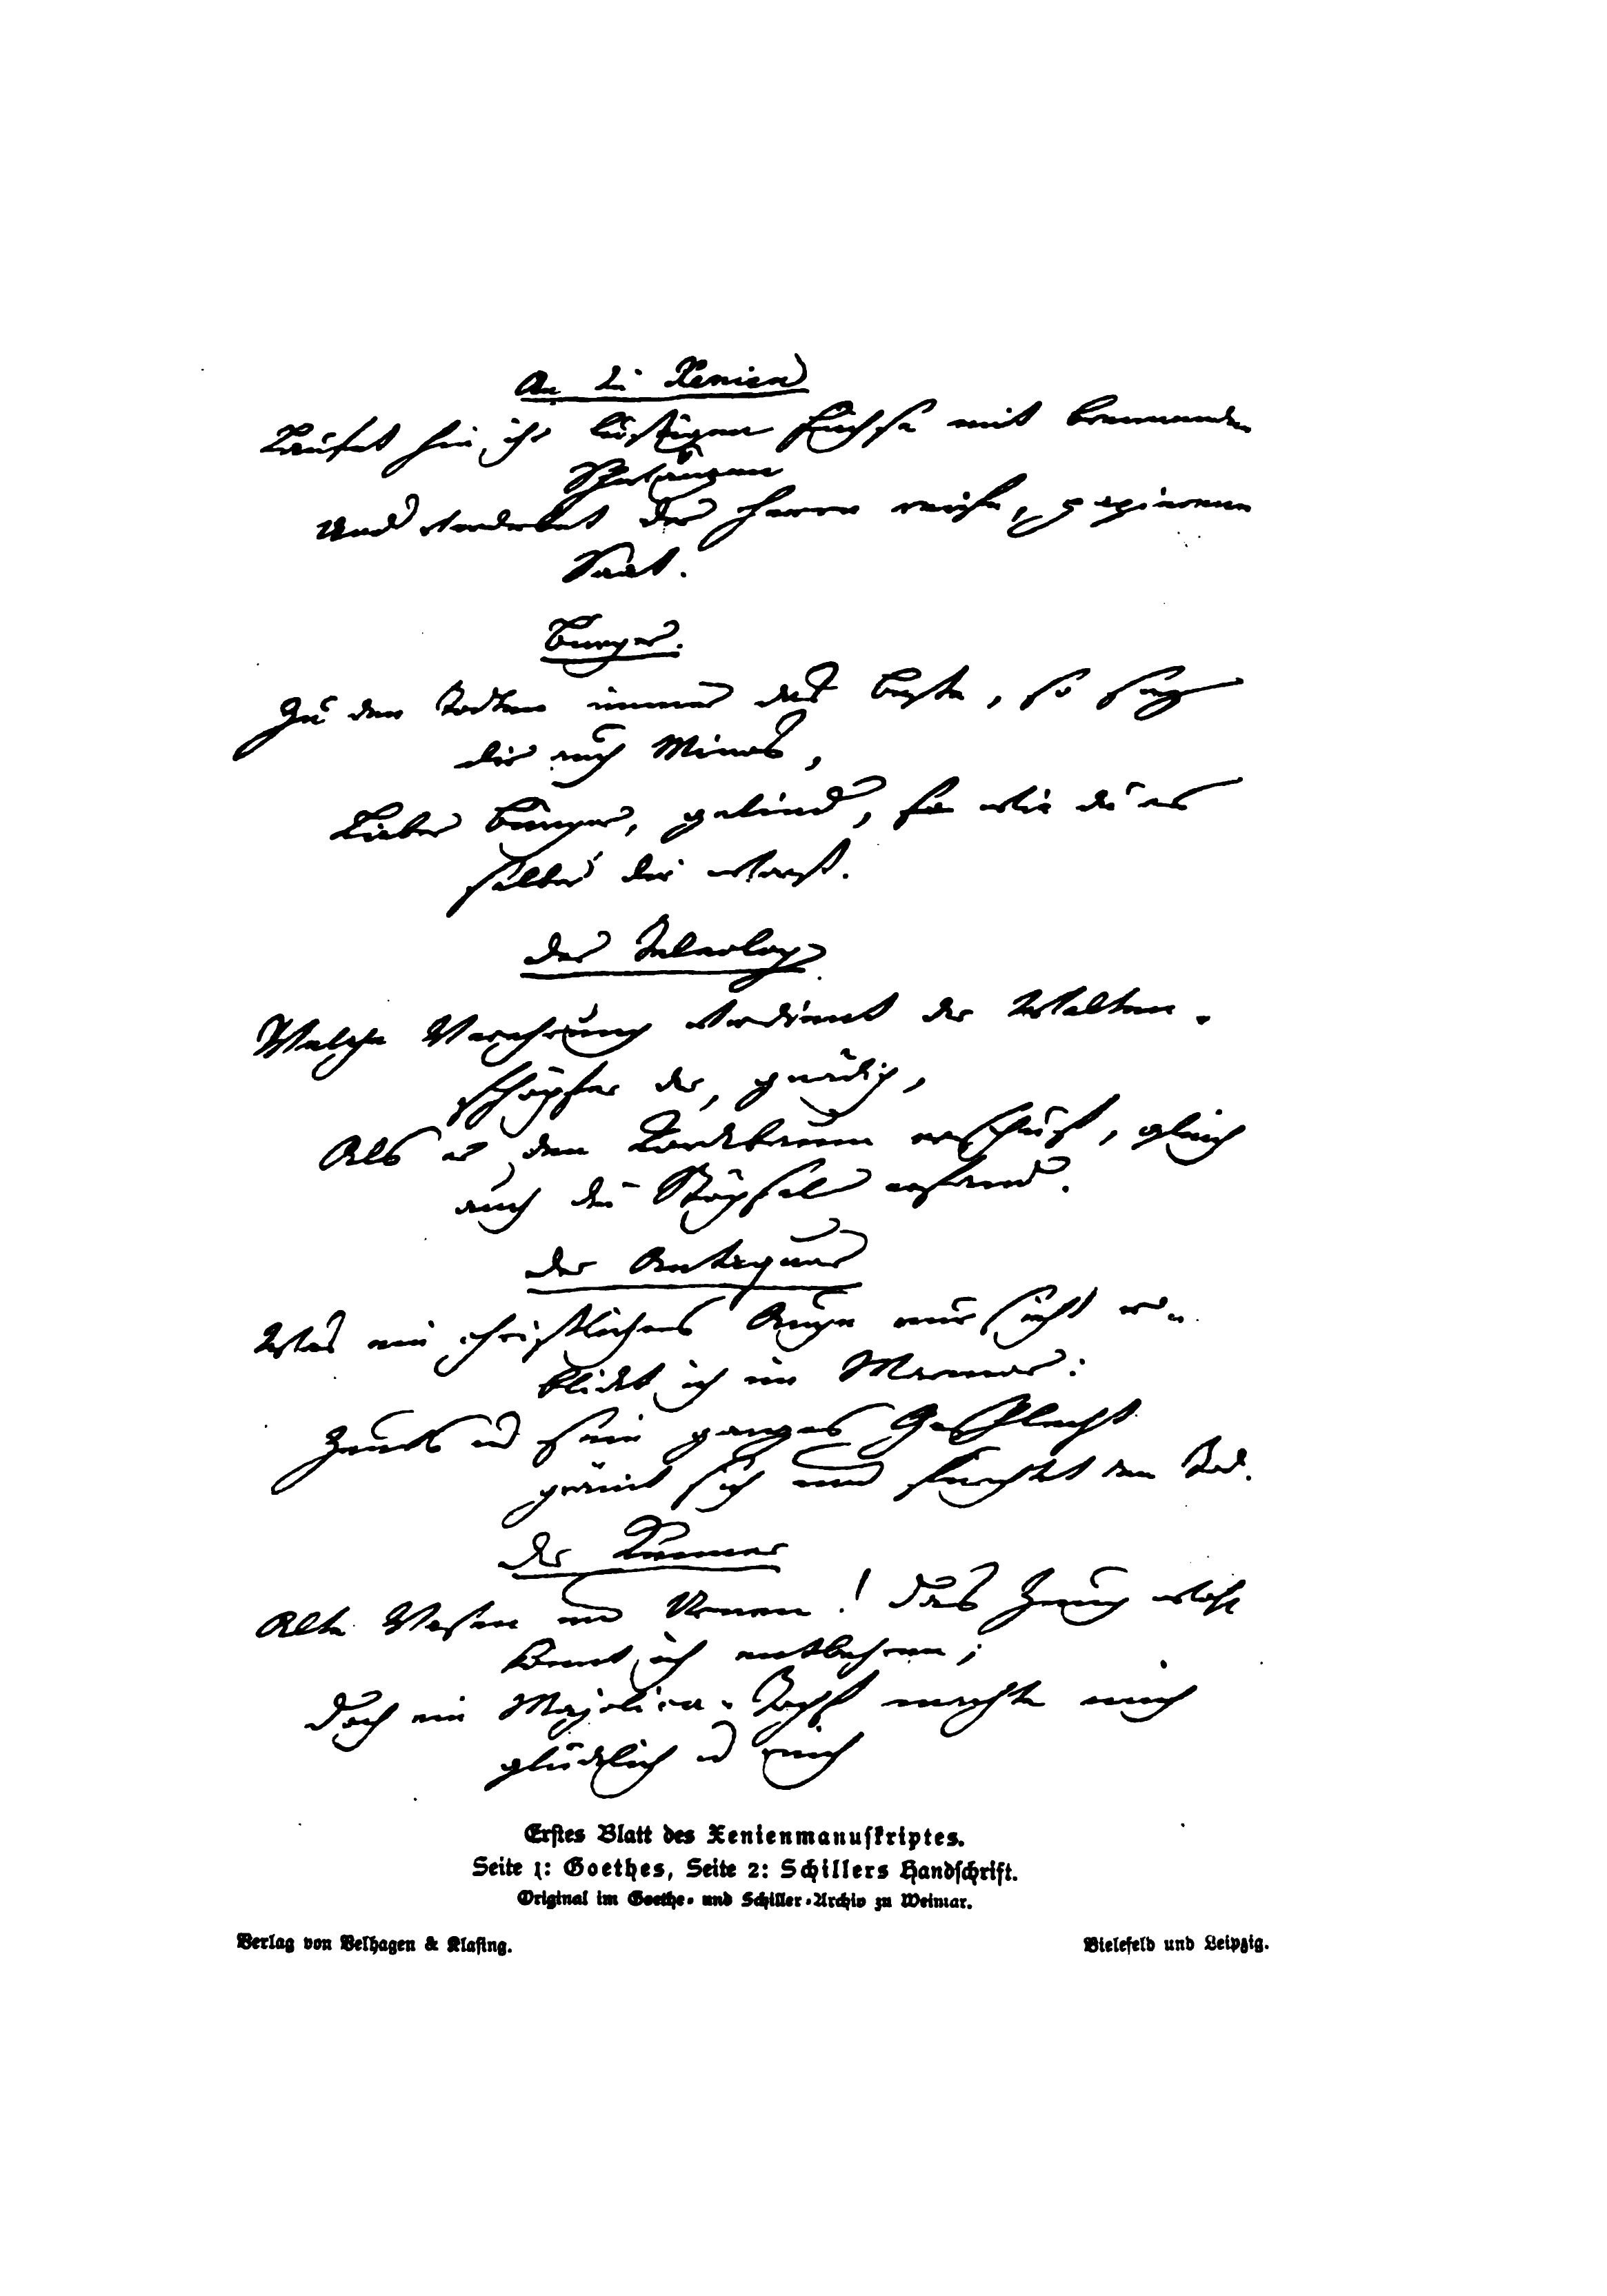 An die Xenien
Laufet hin ihr lustigen Füchse mit brennenden
Schwänzen
Und verderbet der Herrn reife, papierene
Saat.
Bürger.
Zu den Todten immer das beste, so sey
dir auch Minos,
Lieber Bürger, gelind, so wie du es
selber dir warst.
Der Teleolog
Welche Verehrung verdient der Welten-
schöpfer der, gnädig,
Als er den Korckbaum erschuf, gleich
auch die Stöpsel erfand.
Der Antiquar
Was ein christliches Auge nur sieht er-
blickt ich im Marmor:
Zeus und sein ganzes Geschlecht
grämt sich und fürchtet den Tod.
Der Kenner
Alte Vasen und Urnen! Das Zeug wohl
konnt ich entbehren;
Doch ein Majolica-Topf machte mich
glücklich und reich
Erstes Blatt des Xenienmanuskriptes.
Seite 1: Goethes, Seite 2: Schillers Handschrift.
Original im Goethe- und Schiller-Archiv zu Weimar.
Verlag von Velhagen & Klasing.
Bielefeld und Leipzig.